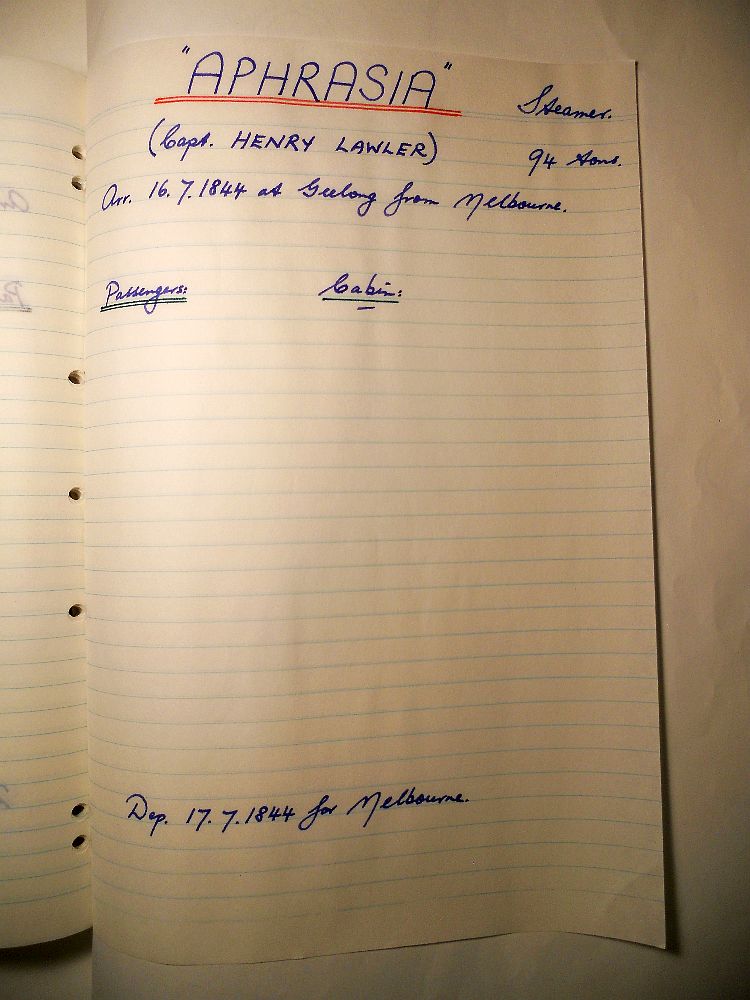 "APHRASIA"
Steamer.
(Capt. HENRY LAWLER)
94 tons.
Arr. 16.7.1844 at Geelong from Melbourne.
Passengers: Cabin:
Dep. 17.7.1844 for Melbourne.